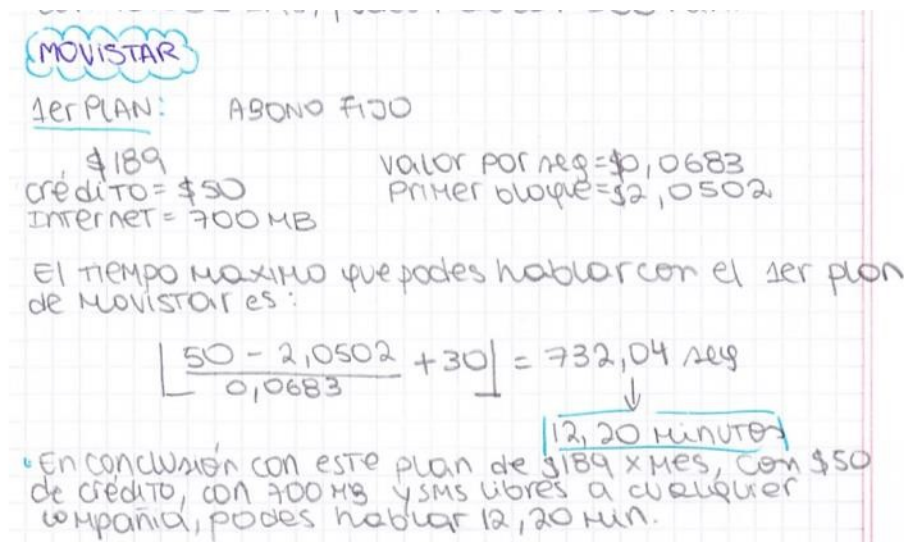 MOVISTAR
1er PLAN: ABONO FIJO
$189
crédito = $50
Internet = 700 MB
valor por seg = $0,0683
Primer bloque = $2,0502
El tiempo maximo que podes hablar con el 1er plan
de Movistar es:
⌊(50 - 2,0502)/0,0683 + 30⌋ = 732,04 seg
↓
12,20 minutos
En conclusión con este plan de $189 x Mes, con $50
de crédito, con 700 MB y SMS libres a cualquier
compañia, podes hablar 12,20 min.